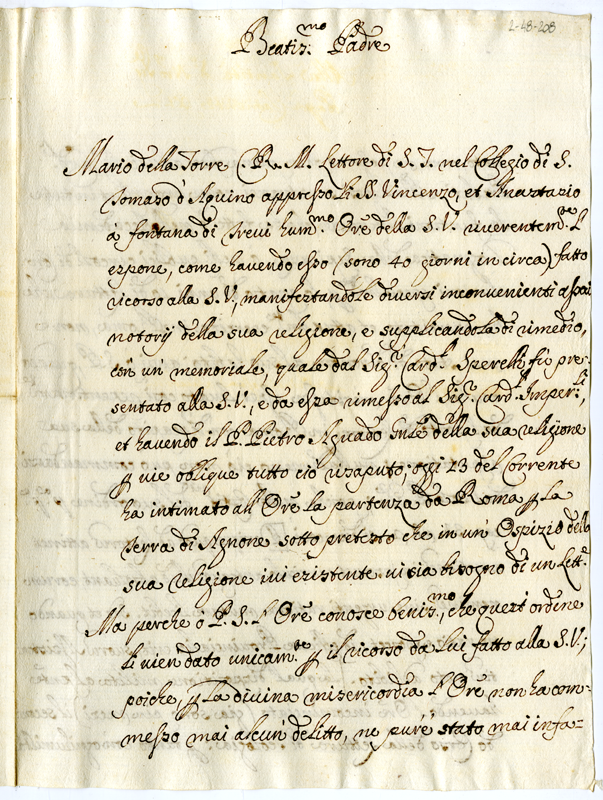 2-48-208
Beatis.mo Padre
Mario della Torre C. R. M. Lettore di S. T. nel Collegio di S.
Tomaso d'Aquino appresso li SS. Vincenzo, et Anastasio
à fontana di Trevi hum.mo Ore della S. V. riverentem.te l'
espone, come havendo esso (sono 40 giorni in circa) fatto
ricorso alla S. V., manifestandole diversi inconvenienti assai
notorij della sua religione, e supplicandola di rimedio,
con un' memoriale, quale dal Sig.r Card.l Sperelli fù pre-
sentato alla S. V., e da essa rimesso al Sig.r Card.l Imper.li,
et havendo il P. Pietro Aguado Gnle della sua religione
p vie oblique tutto ciò risaputo; oggi 23 del Corrente
ha intimato all' Ore la partenza da Roma p la
Terra di Agnone sotto pretesto che in un' Ospizio della
sua religione ivi existente vi sia bisogno di un Lett.
Ma perche ò P. S. l' Ore conosce benis.mo, che quest' ordine
li vien dato unicam.te p il ricorso da Lui fatto alla S. V.;
poiche, p La divina misericordia l' Ore non ha com-
messo mai alcun delitto, ne pure stato mai infa=